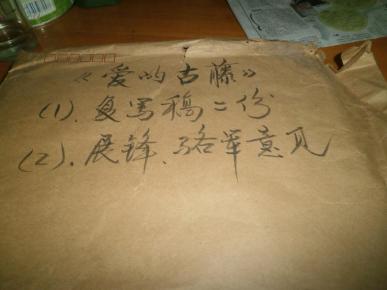 《爱的古藤》
(1)、复写稿二份
(2)、展锋、骆军意见